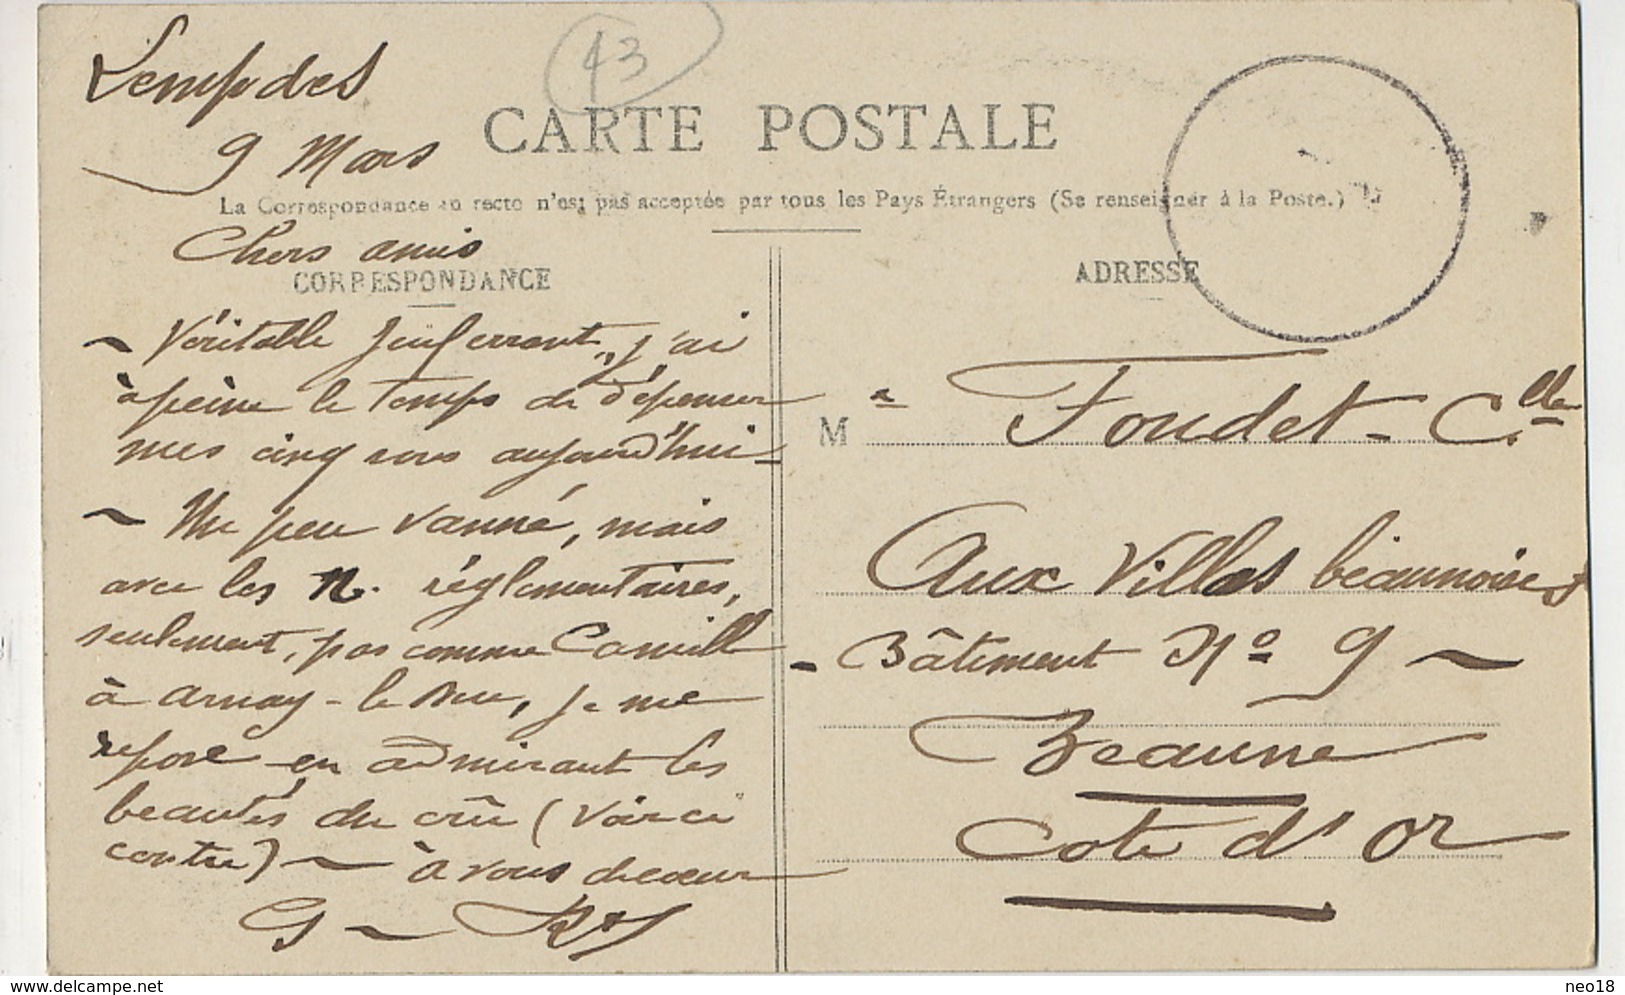 Lempdes
43
9 Mars
CARTE POSTALE
La Correspondance au recto n'est pas acceptée par tous les Pays Étrangers (Se renseigner à la Poste.)
Chers amis
CORRESPONDANCE
~ Véritable Juif errant, j'ai
à peine le temps de dépenser
mes cinq sous aujourd'hui -
~ Un peu vanné, mais
avec les n. réglementaires,
seulement, pas comme Camill
à Arnay-le Duc, je me
repose en admirant les
beautés du crû (voir ci
contre) ~ à vous de cœur
G ~
ADRESSE
M Foudet - C.lle
Aux Villas beaunoises
- Bâtiment No 9 ~
Beaune
Cote d'or
delcampe.net
neo18